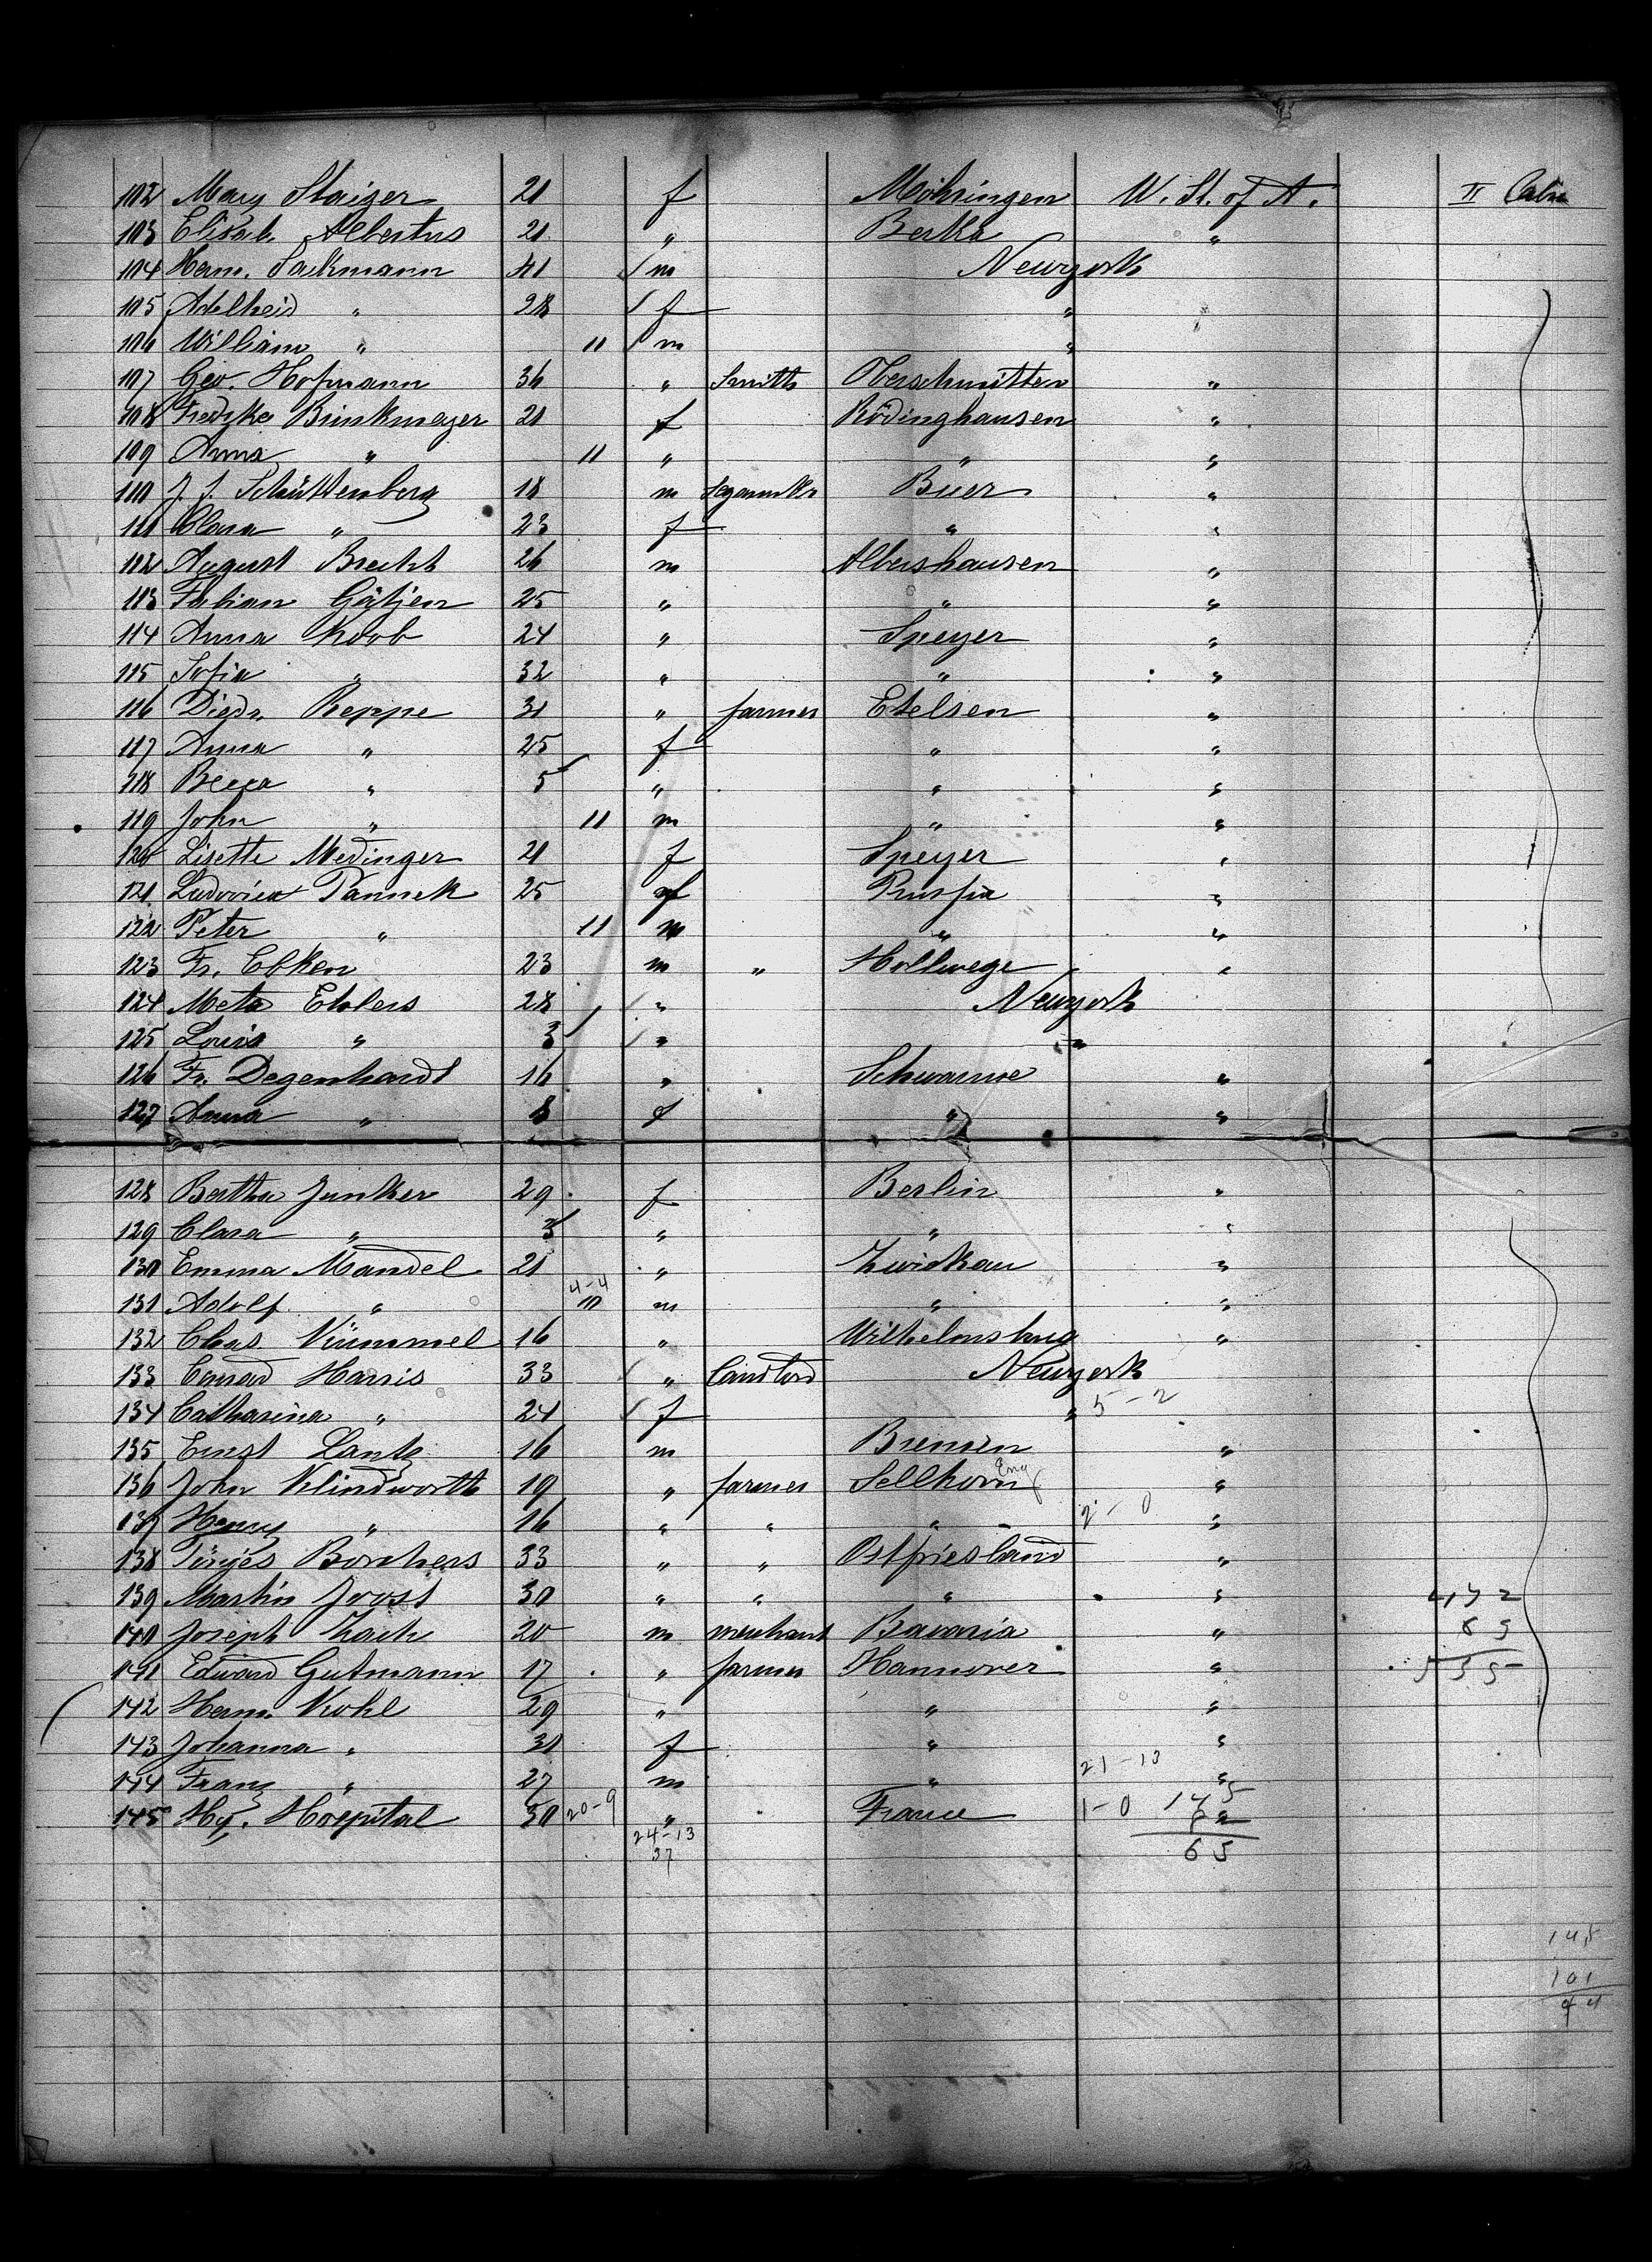 102 Mary Staiger 21 f Möhringen U. St. of A. II Cabin
103 Elisab. Albertus 21 " Berka "
104 Herm. Sackmann 41 m Newyork
105 Adelheid " 28 f "
106 William " 11 m "
107 Geo. Hofmann 36 " Smith Oberschmitten "
108 Fredrke Brinkmeyer 21 f Rödinghausen "
109 Anna " 11 " " "
110 J. J. Schüttenberg 18 m Buer "
111 Clara " 23 f " "
112 August Brecht 26 m Albershausen "
113 Fabian Gätjen 25 " " "
114 Anna Koob 24 " Speyer "
115 Sofia " 32 " " "
116 Diedr. Reppe 31 " farmer Etelsen "
117 Anna " 25 f " "
118 Becca " 5 " " "
119 John " 11 m " "
120 Lisette Medinger 21 f Speyer "
121 Ludovica Pannek 25 f Prussia "
122 Peter " 11 m " "
123 Fr. Ebken 23 m " Hollwege "
124 Meta Ehlers 28 " Newyork
125 Louis " 3 " "
126 Fr. Degenhardt 16 " Schwarme "
127 Anna " 8 f " "
128 Bertha Junker 29 f Berlin "
129 Clara " 3 " " "
130 Emma Mandel 21 " Zwickau "
4-4
131 Adolf " 10 m " "
132 Chas Kümmel 16 " "
133 Conrad Harris 33 " Landlord Newyork
134 Catharina " 24 f " 5-2
135 Ernst Lantz 16 m Bremen "
136 John Klindworth 19 " farmer Sellhorn Eng "
137 Henry " 16 " " " 2-0 "
138 Tönjes Borchers 33 " " Ostfriesland "
139 Martin Joost 30 " " " "
140 Joseph Zach 20 m merchant Bavaria "
141 Edward Gutmann 17 " farmer Hannover " 535
142 Herm. Kohl 29 " " "
143 Johanna " 31 f " "
144 Franz " 27 m " 21-13 "
145 Hy. Hospital 30 20-9 " France 1-0 145
24-13
37
65
145
101
44